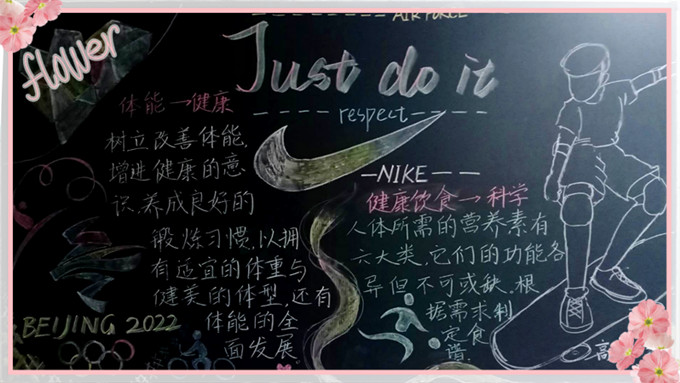 flower
AIR FORCE
Just do it
respect
体能→健康
树立改善体能,
增进健康的意
识,养成良好的
锻炼习惯,以拥
有适宜的体重与
健美的体型,还有
体能的全
面发展
BEIJING 2022
NIKE
健康饮食→科学
人体所需的营养素有
六大类,它们的功能各
异但不可或缺,根
据需求制
定食
谱.
高